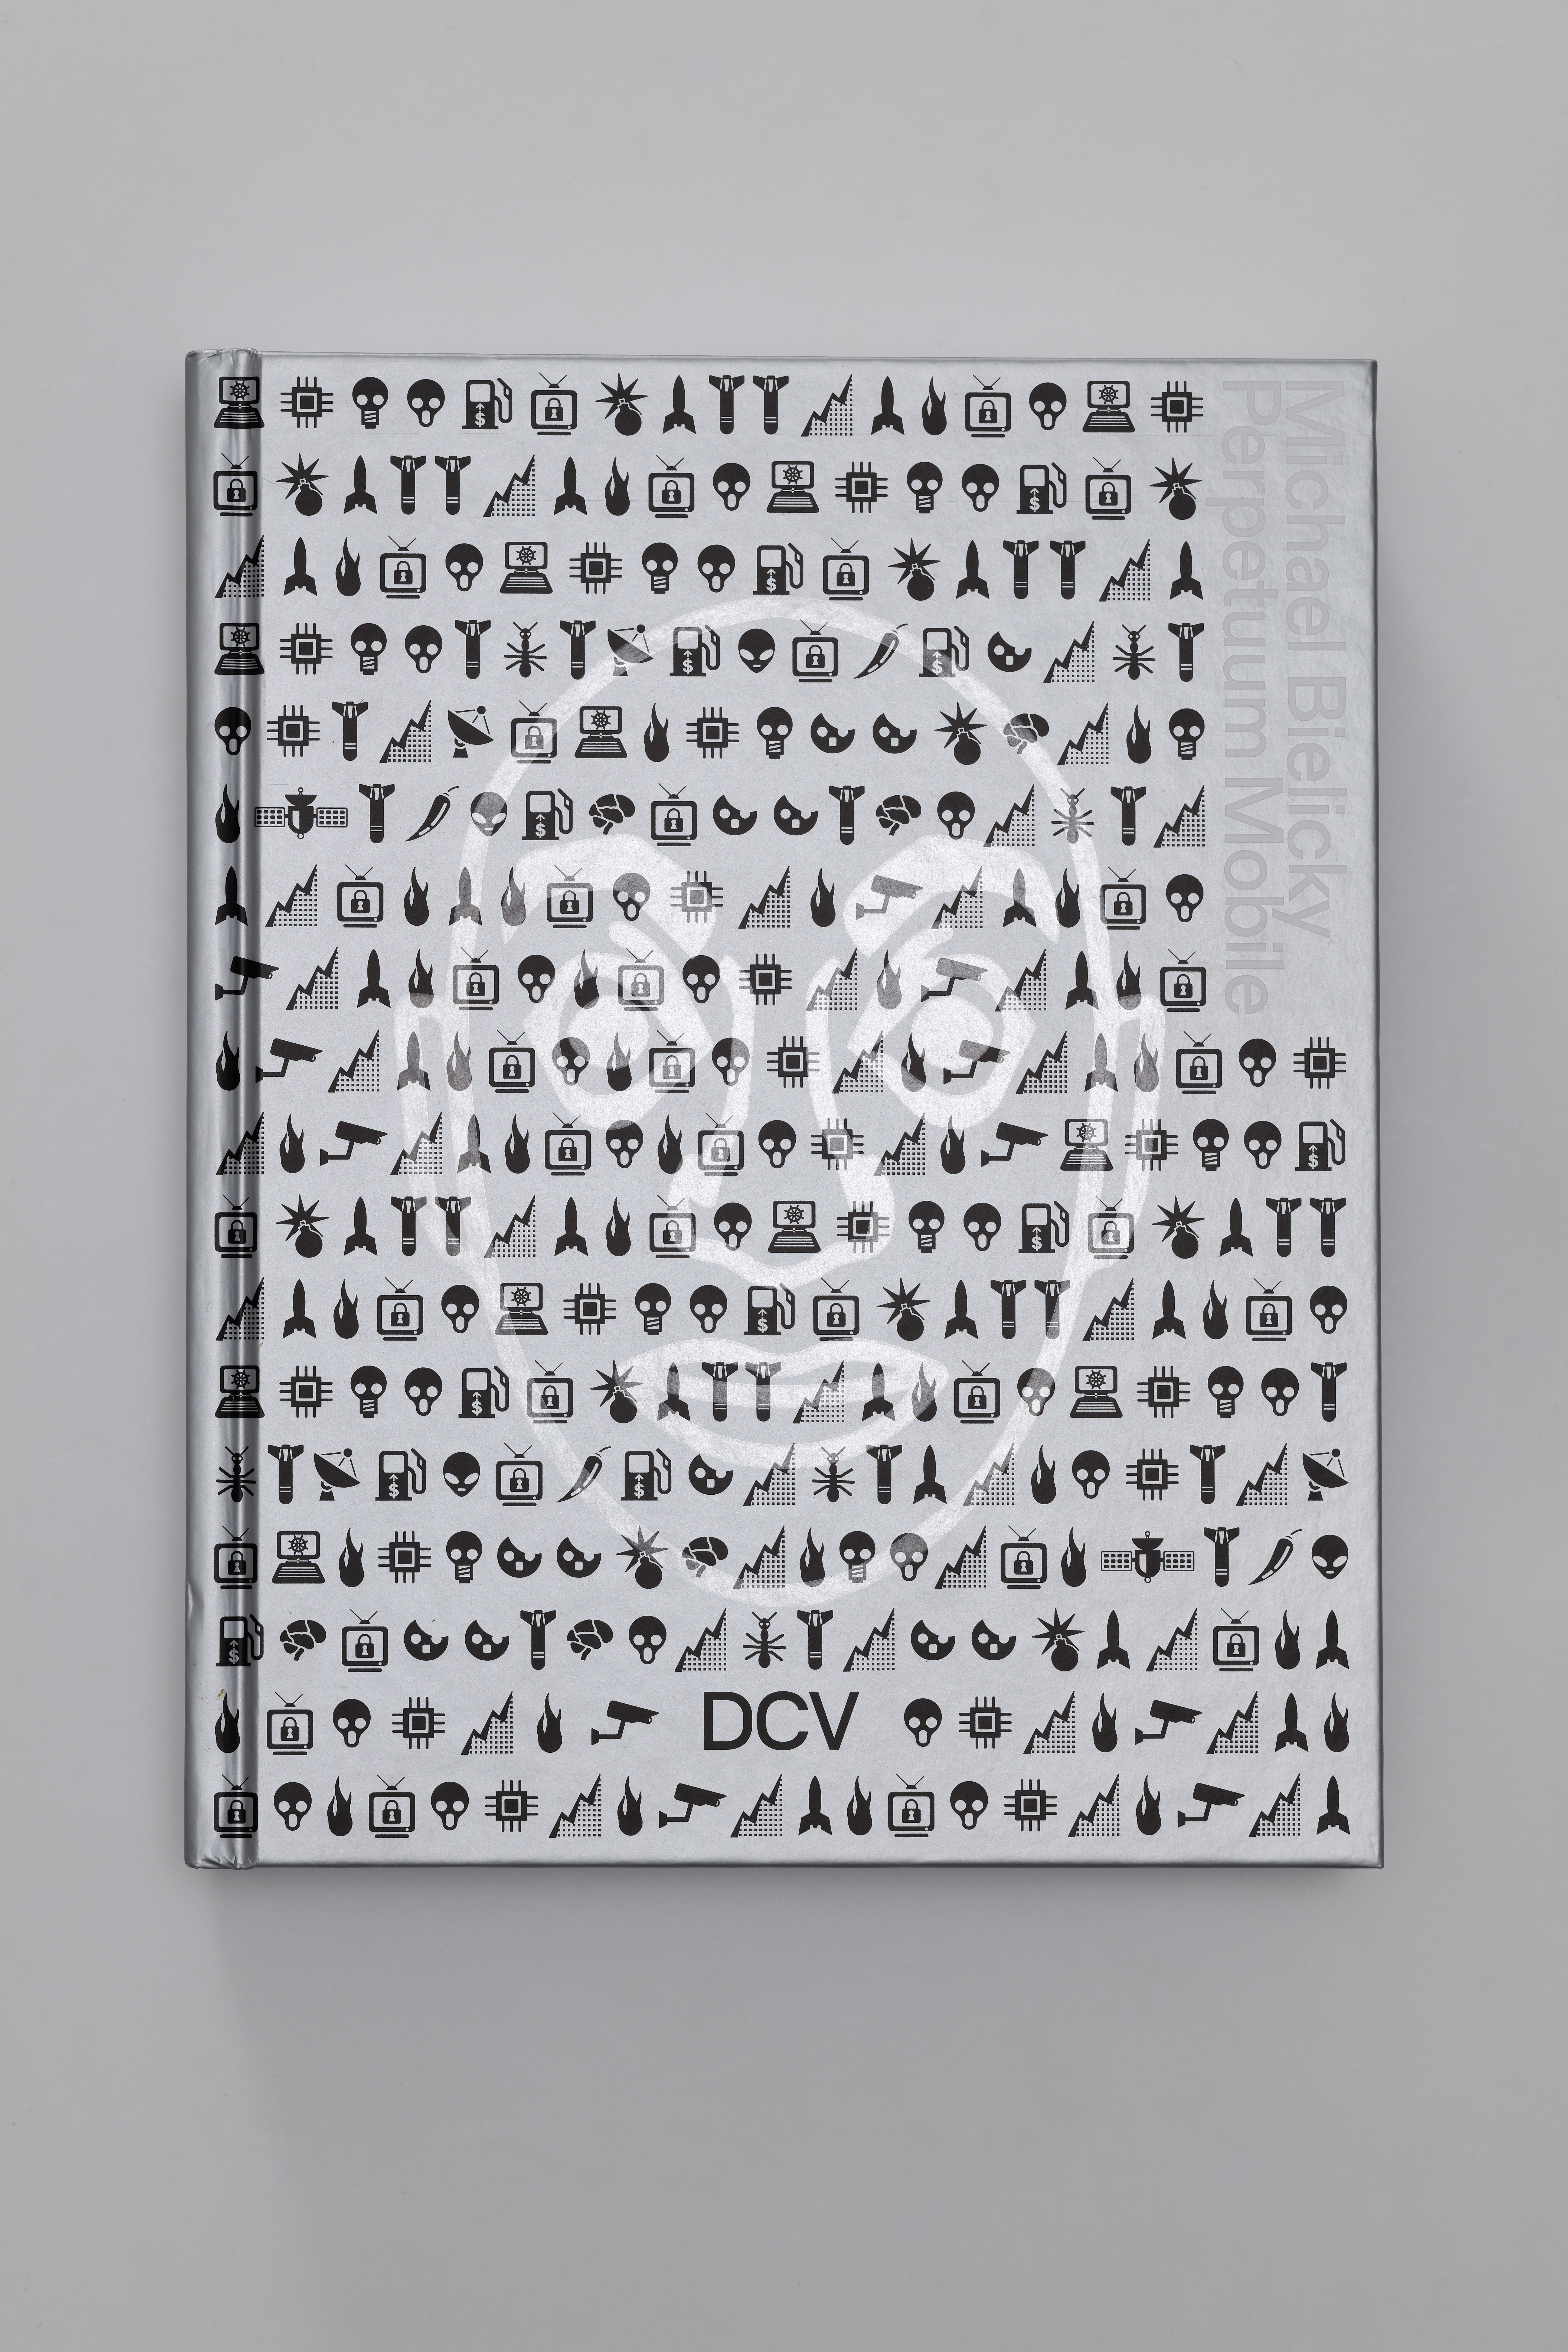 Michael Bielicky
Perpetuum Mobile
DCV